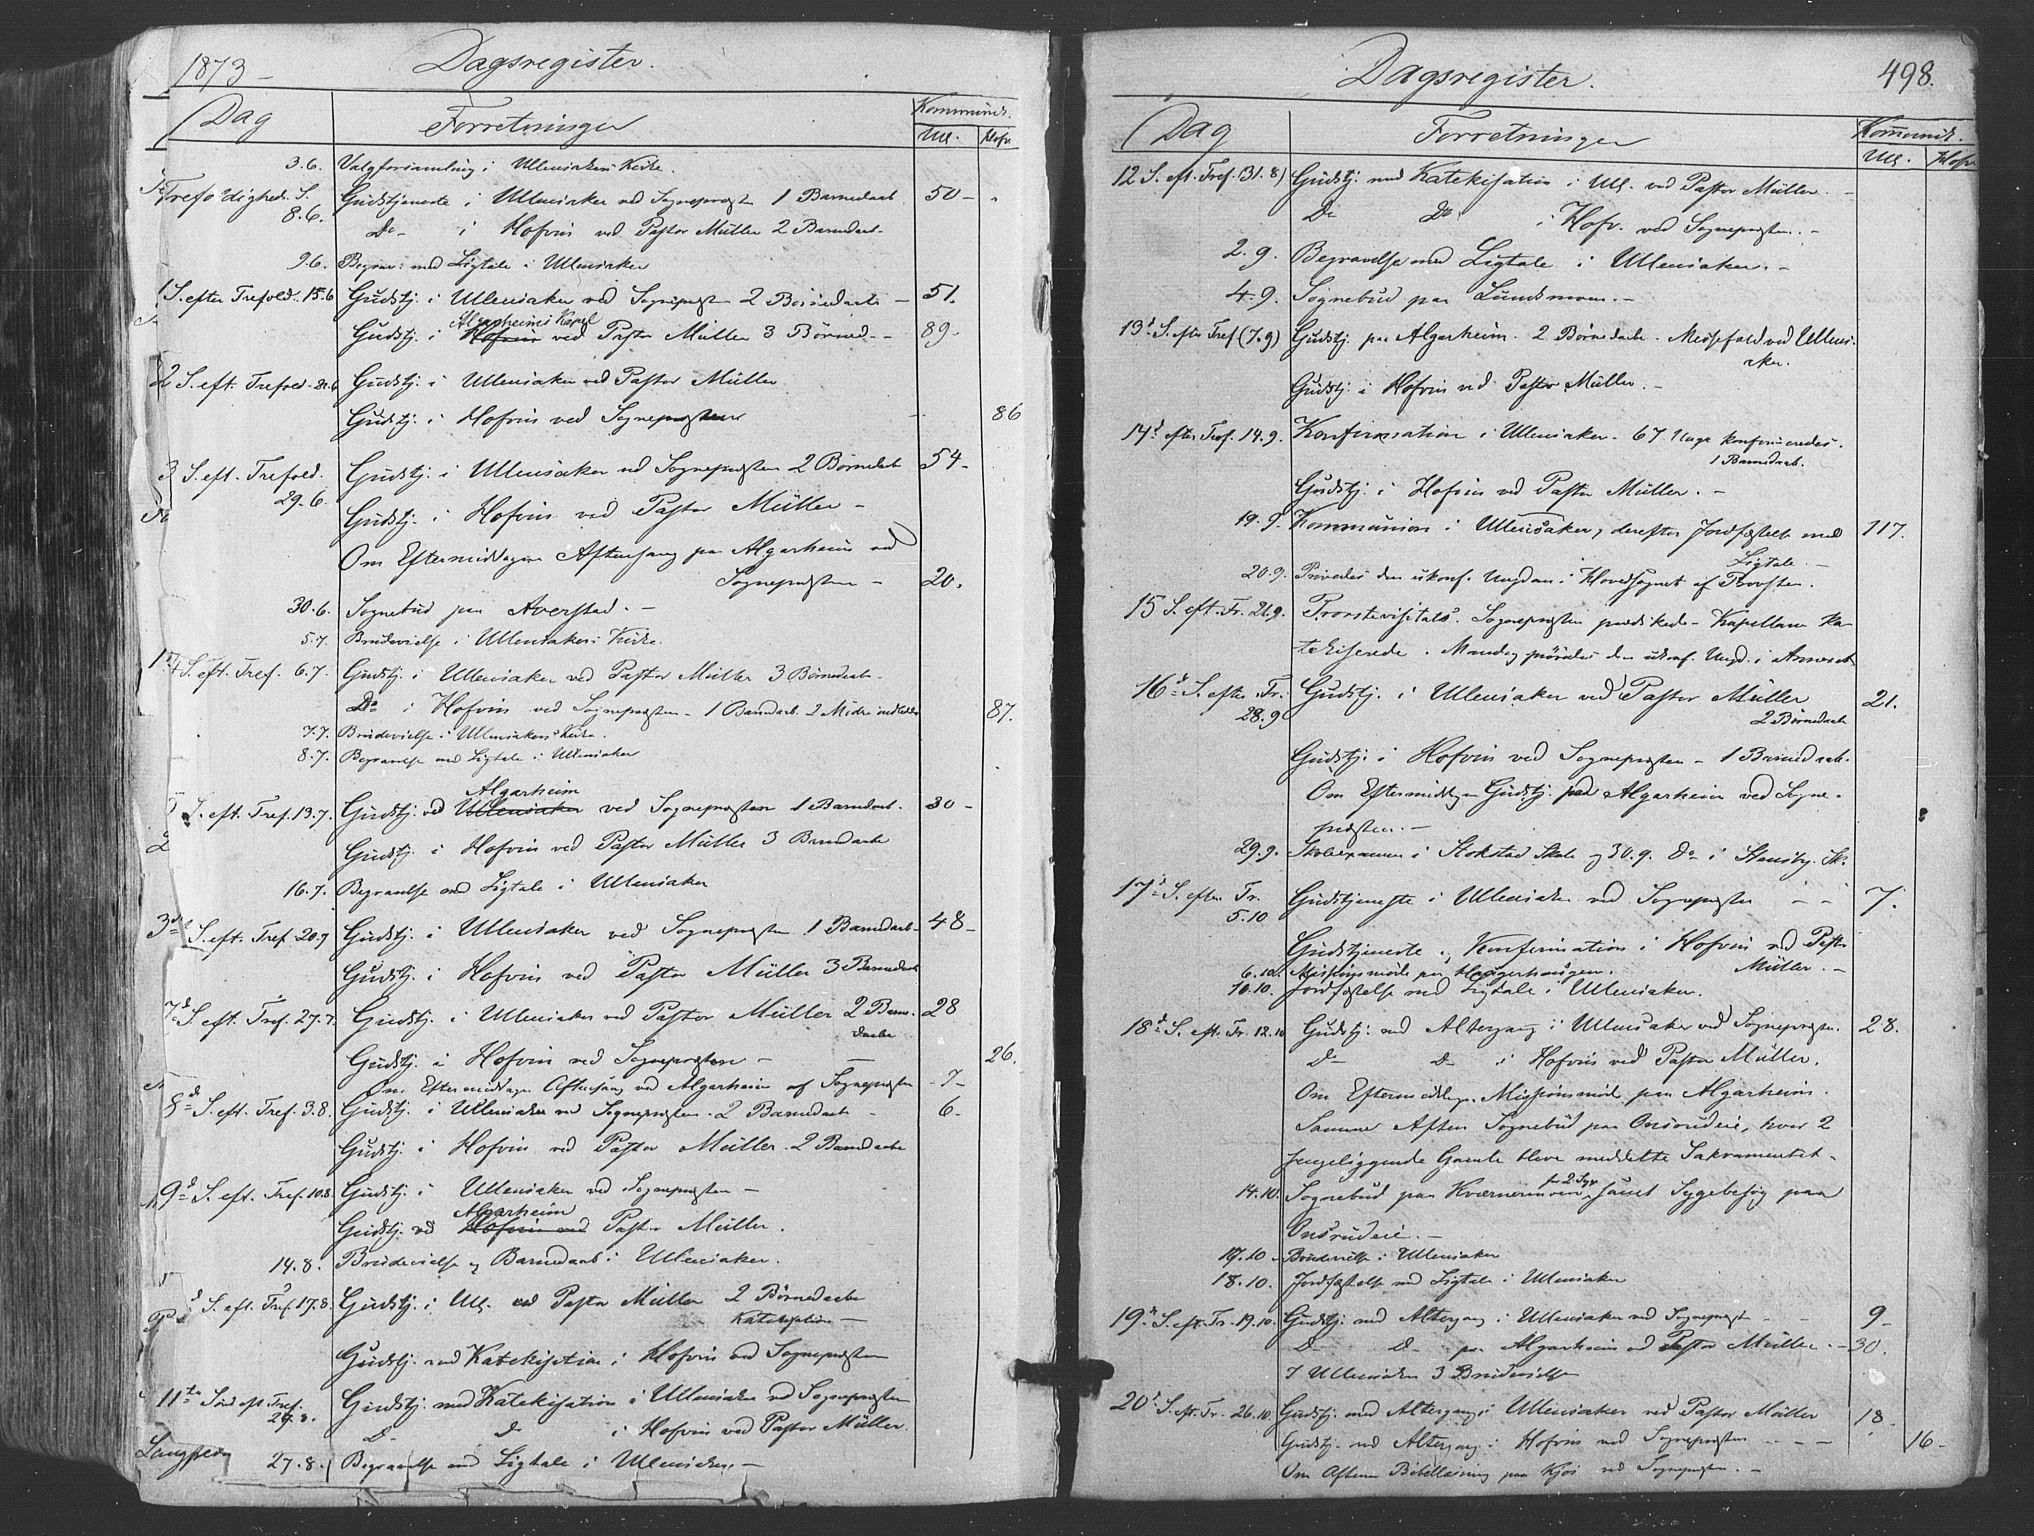 1873 – Dagsregister.
Dag Forretninger Kommunik.
Ull. Hofv.
3.6. Valgforsamling i Ullensakers Kirke.
Trefoldigheds S. Gudstjeneste i Ullensaker ved Sognepræsten 1 Barnedaab. 50 –
8.6. Do – i Hofvin ved Pastor Müller 2 Barnedaab –
9.6. Begrav: med Ligtale i Ullensaker
1 S. efter Trefold. 15.6 Gudstj. i Ullensaker ved Sognepræsten 2 Børnedaab – 51.
Algarheims Kapel
Gudstj. i Hofvin ved Pastor Müller 3 Børned – – 89 –
2 S. eft. Trefold. 22.6 Gudstj. i Ullensaker ved Pastor Müller
Gudstj. i Hofvin ved Sognepræsten – 86
3 S. eft. Trefold. Gudstj. i Ullensaker ved Sognepræsten 2 Børnedaab 54 –
29.6. Gudstj. i Hofvin ved Pastor Müller –
Om Eftermiddagen Aftensang paa Algarheim ved
Sognepræsten – 20.
30.6. Sognebud paa Averstad. –
5.7. Brudevielse i Ullensakers Kirke.
4 S. eft. Tref. 6.7. Gudstj. i Ullensaker ved Pastor Müller 3 Børnedaab –
Do i Hofvin ved Sognepræsten – 1 Barnedaab. 2 Mødre indledede 87.
7.7. Brudevielse i Ullensakers Kirke.
8.7. Begravelse med Ligtale i Ullensaker
Algarheim
5 S. eft. Tref. 13.7. Gudstj. ved Ullensaker ved Sognepræsten 1 Barnedaab. 30 –
Gudstj. i Hofvin ved Pastor Müller 3 Barnedaabe
16.7. Begravelse med Ligtale i Ullensaker
S. eft. Tref. 20.7 Gudstj. i Ullensaker ved Sognepræsten 1 Barnedaab – 48 –
Gudstj. i Hofvin ved Pastor Müller 3 Barnedaab
7d S. eft. Tref. 27.7. Gudstj. i Ullensaker ved Pastor Müller 2 Barne- 28
daabe
Gudstj. i Hofvin ved Sognepræsten – – 26.
Om Eftermiddagen Aftensang ved Algarheim af Sognepræsten – 7 –
8d S. eft. Tref. 3.8. Gudstj. i Ullensaker ved Sognepræsten. 2 Barnedaab – 6 –
Gudstj. i Hofvin ved Pastor Müller. 2 Barnedaabe
9d S. eft. Tref. 10.8. Gudstj. i Ullensaker ved Sognepræsten –
Algarheim
Gudstj. ved Hofvin ved Pastor Müller.
14.8. Brudevielse og Barnedaab i Ullensaker.
S. eft. Tref. 17.8. Gudstj. i Ull. ved Pastor Müller 2 Børnedaabe
Katekisation –
Gudstj. med Katekisation i Hofvin ved Sognepræsten
11te Sønd. eft. Tref. Gudstj. med Katekisation i Ullensaker ved Sognepræsten
24.8. Do Do i Hofvin ved Pastor Müller.
27.8. Begravelse med Ligtale i Ullensaker. –
Dagsregister. 498.
Dag Forretninger Kommunik.
Ull. Hofv.
12 S. eft. Tref. (31.8) Gudstj. med Katekisation i Ull. ved Pastor Müller. –
Do Do i Hofv. ved Sognepræsten. –
2.9. Begravelse med Ligtale i Ullensaker. –
4.9. Sognebud paa Lundsmoen. –
13d S. efter Tref (7.9) Gudstj. paa Algarheim. 2 Børnedaabe. Messefald ved Ullensa-
ker.
Gudstj. i Hofvin ved Pastor Müller. –
14d efter Tref. 14.9. Konfirmation i Ullensaker. 67 Unge konfirmeredes.
1 Barnedaab.
Gudstj. i Hofvin ved Pastor Müller. –
19.9. Kommunion i Ullensaker, derefter Jordfæstelse med 117.
Ligtale. –
20.9. Prøvedes den ukonf. Ungdom i Hovedsognet af Provsten.
15 S. eft. Fr. 21.9. Provstevisitats. Sognepræsten prædikede – Kapellanen Ka-
tekiserede. Mandag prøvedes den ukonf. Ungd. i Annexet
16d S. efter Tr. Gudstj. i Ullensaker ved Pastor Müller 21.
28.9 2 Børnedaab
Gudstj. i Hofvin ved Sognepræsten – 1 Barnedaab.
Om Eftermiddagen Gudstj. paa Algarheim ved Sogne-
præsten. –
29.9. Skoleexamen i Stokstad Skole og 30.9. Do i Stensby Sk.
17d S. efter Tr. Gudstjeneste i Ullensaker ved Sognepræsten – – 7.
5.10
Gudstjeneste og Konfirmation i Hofvin ved Pastor
6.10. Missionsmøde paa Haugerhaugen. Müller. –
10.10. Jordfæstelse med Ligtale i Ullensaker.
18d S. eft. Tr. 12.10 Gudstj. med Altergang i Ullensaker ved Sognepræsten. 28.
Do Do i Hofvin ved Pastor Müller.
Om Eftermiddagen Missionsmøde paa Algarheim.
Samme Aften Sognebud paa Onsrudeie, hvor 2
sengeliggende Gamle bleve meddelte Sakramentet –
for 2 Syge
14.10. Sognebud paa Kværnermoen, samt Sygebesøg paa
Onsrudeie. –
17.10 – Brudevielse i Ullensaker
18.10. Jordfæstelse med Ligtale i Ullensaker
19de S. eft. Tr. 19.10. Gudstj. med Altergang i Ullensaker ved Sognepræst – – 9 –
Do Do paa Algarheim ved Pastor Müller – – 30.
I Ullensaker 3 Brudevielser
20d S. eft. Tr. 26.10. Gudstj. med Altergang i Ullensaker ved Pastor Müller 18.
Gudstj. med Altergang i Hofvin ved Sognepræsten – – – 16 –
Om Aftenen Bibellæsning paa Kjos ved Sognepræsten. –